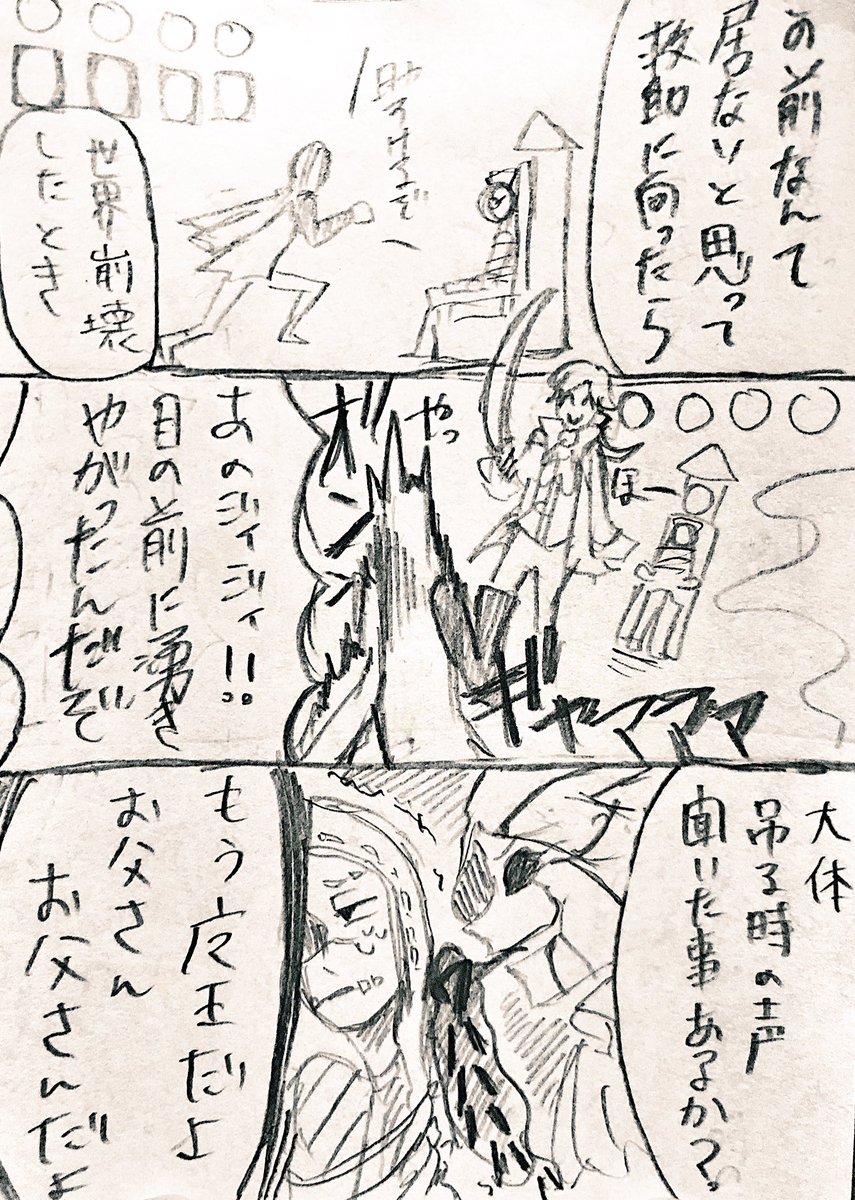 お前なんて
居ないと思って
救助に向ったら
助けるぞ〜
世界崩壊
したとき
ぼー
やっ
ギャアアア
あのジィジィ!!
目の前に湧き
やがったんだぞ
大体
吊る時の声
聞いた事あるか?
もう魔王だよ
お父さん
お父さんだよ